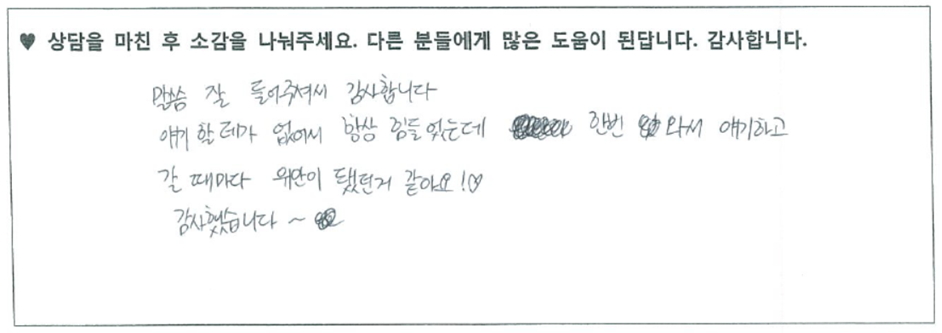 ♥ 상담을 마친 후 소감을 나눠주세요. 다른 분들에게 많은 도움이 된답니다. 감사합니다.
말씀 잘 들어주셔서 감사합니다
얘기 할 데가 없어서 항상 힘들었는데 한번 와서 얘기하고
갈 때마다 위안이 됐던거 같아요!♡
감사했습니다 ~